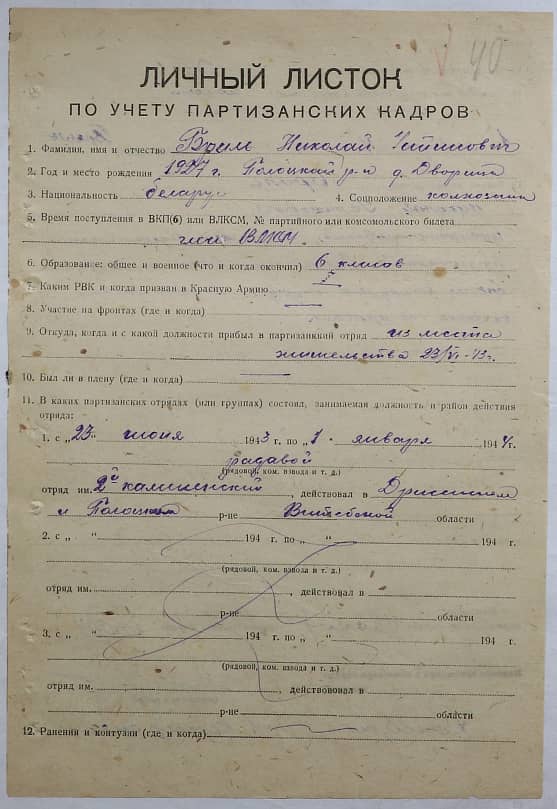 40
ЛИЧНЫЙ ЛИСТОК
ПО УЧЕТУ ПАРТИЗАНСКИХ КАДРОВ
1. Фамилия, имя и отчество Николай
2. Год и место рождения 1927 г. Полоцкий р-н д. Дворища
3. Национальность беларус 4. Соцположение колхозник
5. Время поступления в ВКП(б) или ВЛКСМ, № партийного или комсомольского билета
член ВЛКСМ.
6. Образование: общее и военное (что и когда окончил) 6 класов
7. Каким РВК и когда призван в Красную Армию —
8. Участие на фронтах (где и когда) —
9. Откуда, когда и с какой должности прибыл в партизанский отряд из места
жительства 23/VI-43 г.
10. Был ли в плену (где и когда) —
11. В каких партизанских отрядах (или группах) состоял, занимаемая должность и район действия
отряда:
1. с „23" июня 1943 г. по „1" января 1944 г.
радавой
(рядовой, ком. взвода и т. д.)
отряд им. 2й , действовал в Дриссенском
и Полоцком р-не Витебской области
2. с „ " 194 г. по „ " 194 г.
(рядовой, ком. взвода и т. д.)
отряд им. , действовал в
р-не области
3. с „ " 194 г. по „ " 194 г.
(рядовой, ком. взвода и т. д.)
отряд им. , действовал в
р-не области
12. Ранения и контузии (где и когда) —